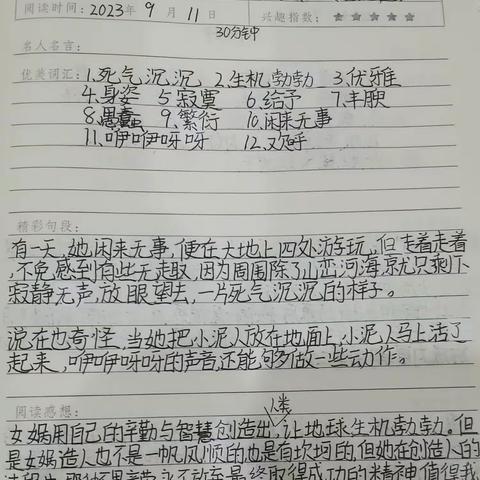 阅读时间：2023年9月11日 兴趣指数：★★★★★
30分钟
名人名言：
优美词汇：1.死气沉沉 2.生机勃勃 3.优雅
4.身姿 5.寂寞 6.给予 7.丰腴
8.愚蠢 9.繁衍 10.闲来无事
11.咿咿呀呀 12.欢呼
精彩句段：
有一天,她闲来无事,便在大地上四处游玩,但走着走着
,不免感到有些无趣,因为周围除了山峦河海,就只剩下
寂静无声,放眼望去,一片死气沉沉的样子。
说在也奇怪,当她把小泥人放在地面上,小泥人马上活了
起来,咿咿呀呀的声音,还能够做一些动作。
阅读感想：
人类
女娲用自己的辛勤与智慧创造出,让地球生机勃勃。但
是女娲造人也不是一帆风顺的也是有坎坷的,但她在创造人的
取得成功的精神值得我